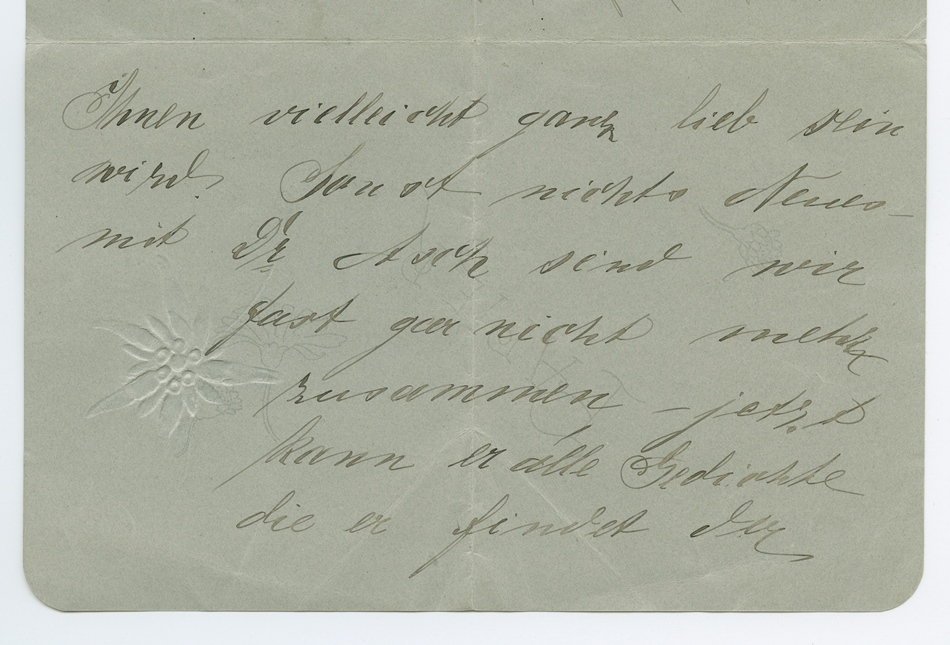 Ihnen vielleicht ganz lieb sein
wird. Sonst nichts Neues –
mit Dr Asch sind wir
fast gar nicht mehr
zusammen – jetzt
kann er alle Gedichte
die er findet der